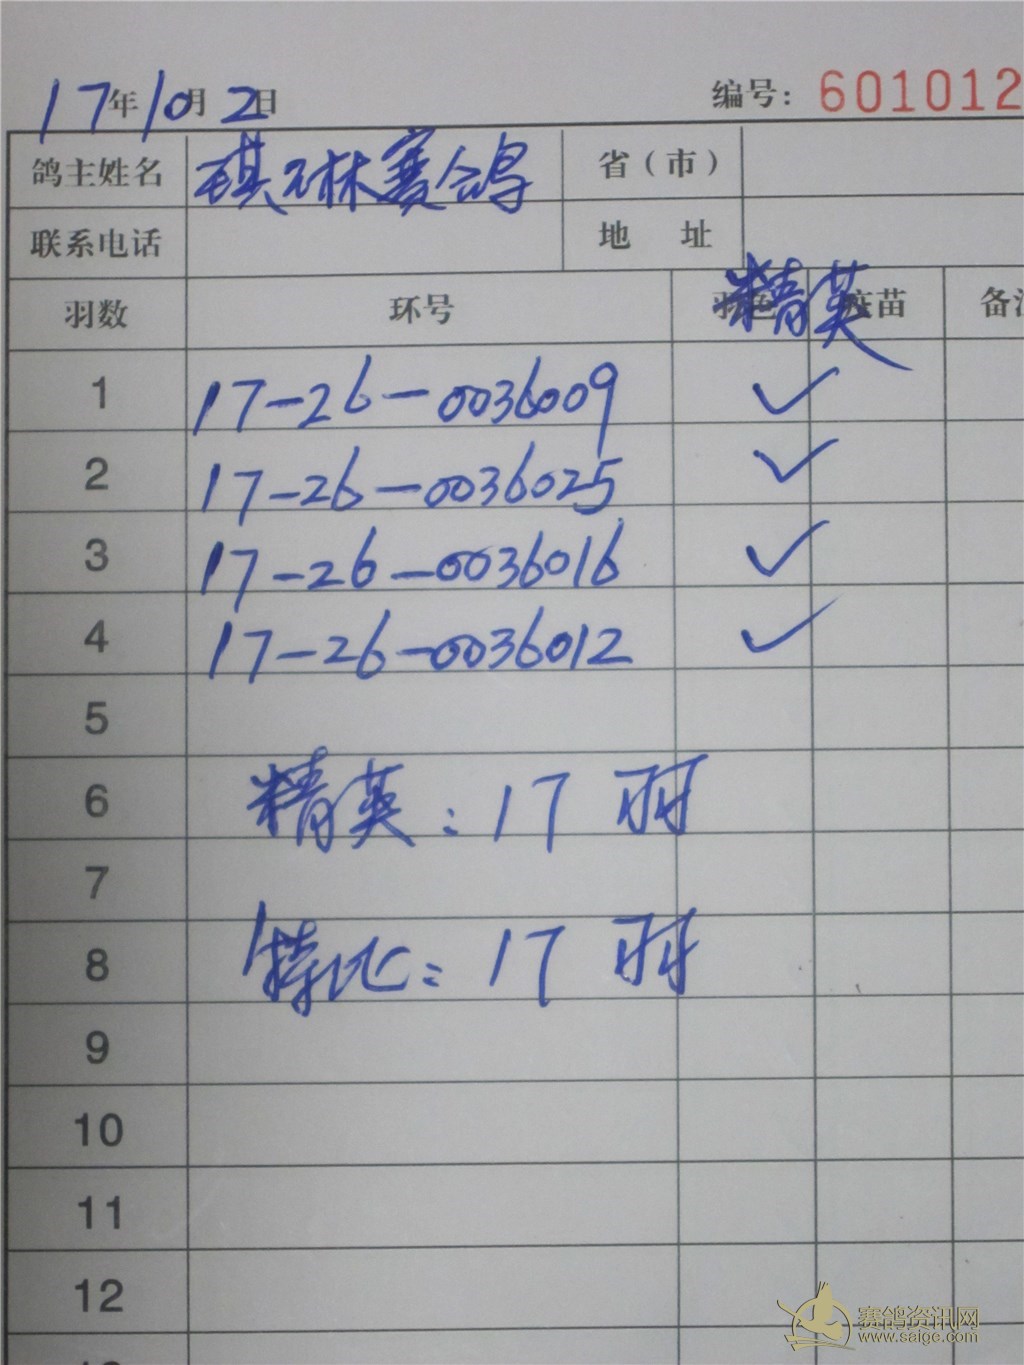 17年10月2日 编号：601012
鸽主姓名 琪琳赛鸽 省（市）
联系电话 地 址
羽数 环号 羽色 精英 疫苗 备注
1 17-26-0036009 ✓
2 17-26-0036025 ✓
3 17-26-0036016 ✓
4 17-26-0036012 ✓
5
6 精英：17羽
7
8 特比：17羽
9
10
11
12
13
赛鸽资讯网
www.saige.com